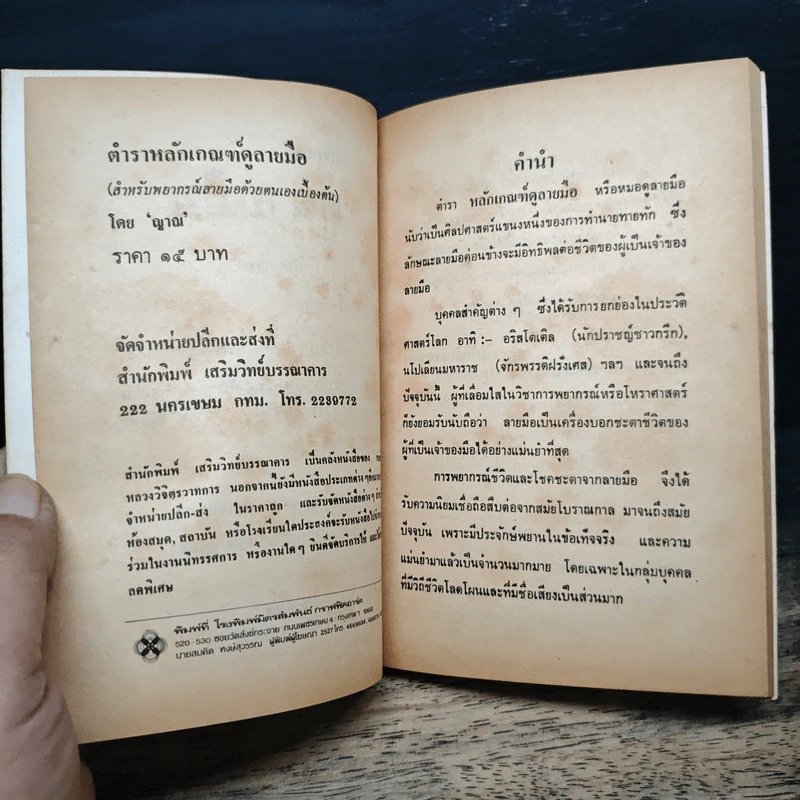 ตำราหลักเกณฑ์ดูลายมือ
(สำหรับพยากรณ์ลายมือด้วยตนเองเบื้องต้น)
โดย ‘ญาณ’
ราคา ๑๕ บาท
จัดจำหน่ายปลีกและส่งที่
สำนักพิมพ์ เสริมวิทย์บรรณาคาร
222 นครเขษม กทม. โทร. 2289772
สำนักพิมพ์ เสริมวิทย์บรรณาคาร เป็นคลังหนังสือของ
หลวงวิจิตรวาทการ นอกจากนี้ยังมีหนังสือประเภทต่างๆ
จำหน่ายปลีก-ส่ง ในราคาถูก และรับจัดหนังสือต่างๆ
ห้องสมุด, สถาบัน หรือโรงเรียนใดประสงค์จะรับหนังสือ
ร่วมในงานนิทรรศการ หรืองานใดๆ ยินดีจัดบริการให้
ลดพิเศษ
พิมพ์ที่ โรงพิมพ์มิตรสัมพันธ์ กราฟฟิคอาร์ต
520-530 ซอยวัดสังข์กระจาย ถนนเพชรเกษม 4 กรุงเทพฯ 10600
นายสมคิด หงษ์สุวรรณ ผู้พิมพ์ผู้โฆษณา 2527 โทร.
คำนำ
ตำรา หลักเกณฑ์ดูลายมือ หรือหมอดูลายมือ
นับว่าเป็นศิลปศาสตร์แขนงหนึ่งของการทำนายทายทัก ซึ่ง
ลักษณะลายมือค่อนข้างจะมีอิทธิพลต่อชีวิตของผู้เป็นเจ้าของ
ลายมือ
บุคคลสำคัญต่าง ๆ ซึ่งได้รับการยกย่องในประวัติ
ศาสตร์โลก อาทิ :– อริสโตเติล (นักปราชญ์ชาวกรีก),
นโปเลียนมหาราช (จักรพรรดิฝรั่งเศส) ฯลฯ และจนถึง
ปัจจุบันนี้ ผู้ที่เลื่อมใสในวิชาการพยากรณ์หรือโหราศาสตร์
ก็ยังยอมรับนับถือว่า ลายมือเป็นเครื่องบอกชะตาชีวิตของ
ผู้ที่เป็นเจ้าของมือได้อย่างแม่นยำที่สุด
การพยากรณ์ชีวิตและโชคชะตาจากลายมือ จึงได้
รับความนิยมเชื่อถือสืบต่อจากสมัยโบราณกาล มาจนถึงสมัย
ปัจจุบัน เพราะมีประจักษ์พยานในข้อเท็จจริง และความ
แม่นยำมาแล้วเป็นจำนวนมากมาย โดยเฉพาะในกลุ่มบุคคล
ที่มีวิถีชีวิตโลดโผนและที่มีชื่อเสียงเป็นส่วนมาก